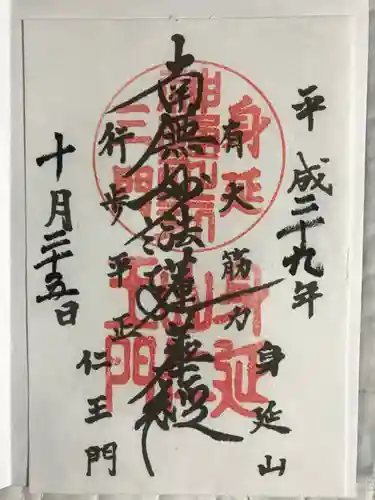 平成二十九年
身延山
有大筋力
南無妙法蓮華経
行歩平正
仁王門
十月二十五日
身延
三門
身延山
仁王門